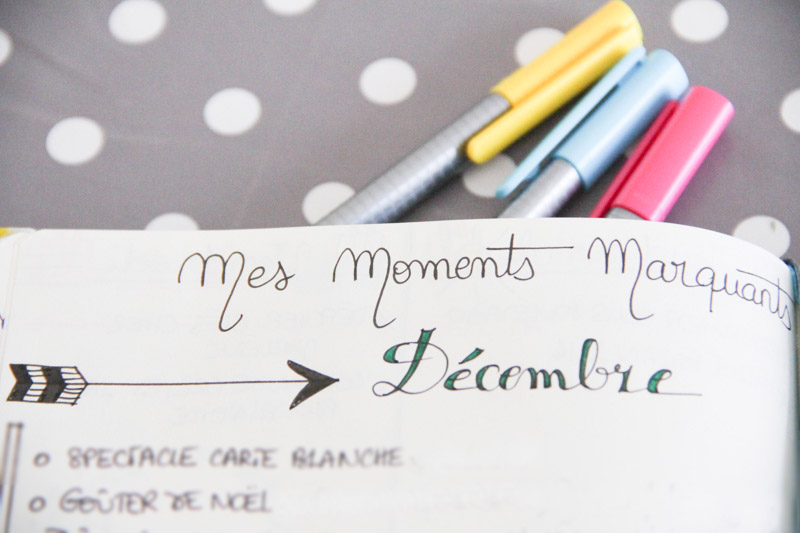 Mes Moments Marquants
Décembre
SPECTACLE CARTE BLANCHE
GOÛTER DE NOËL